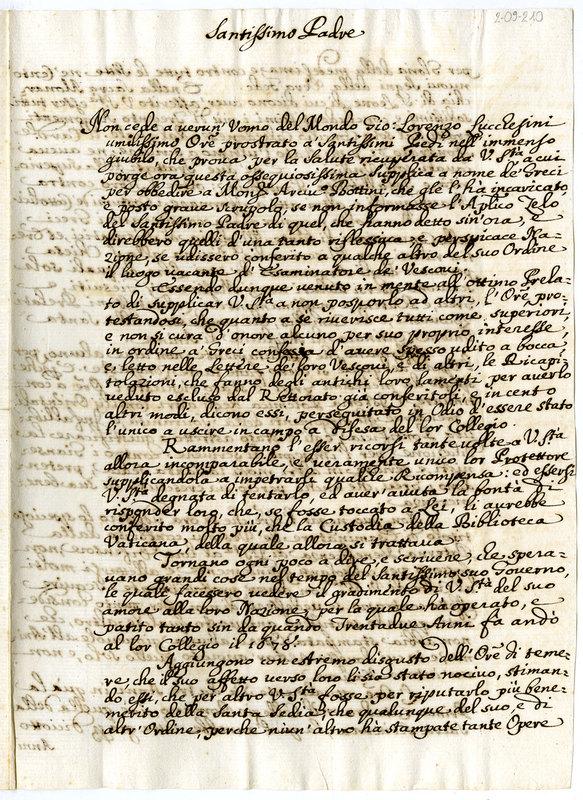 2-09-210
Santissimo Padre
Non cede a verun' Vomo del Mondo Gio: Lorenzo Lucchesini
umilissimo Orẽ prostrato a' Santissimi Piedi nell' immenso
giubilo, che proua per la Salute ricuperata da V. Stà a cui
porge ora questa ossequiosissima Supplica a nome de' Greci
per obbedire a Mons.r Arciu.o Bottini, che gle l'ha incaricato,
e posto graue scrupolo, se non informasse l'Aplico Zelo
del Santissimo Padre di quel, che hanno detto sin'ora, e
direbbero quelli d'una tanto riflessaua, e perspicace Na-
zione, se udissero conferito a qualche altro del suo Ordine
il luogo vacante d'Esaminatore de' Vescoui.
Essendo dunque venuto in mente all'ottimo Prela-
to di supplicar V. Stà a non posporlo ad altri, l'Orẽ pro-
testandosi, che quanto a se riuerisce tutti come superiori,
e non si cura d'onore alcuno per suo proprio interesse,
in ordine a' Greci confessa d'auere spesso udito a bocca
e letto nelle Lettere de' loro Vescoui, e di altri, le Ricapi-
tolazioni, che fanno degli antichi loro lamenti per auerlo
veduto escluso dal Rettorato già conferitoli, e in cento
altri modi, dicono essi, perseguitato in Odio d'essere stato
l'unico a uscire in campo a Difesa del lor Collegio.
Rammentano l'esser ricorsi tante uolte a V. Stà
allora incomparabile, e veramente unico lor Protettore
supplicandola a impetrarli qualche Ricompensa: ed essersi
V. Stà degnata di tentarlo, ed auer' auuta la bontà di
risponder loro, che, se fosse toccato a Lei, li aurebbe
conferito molto più, che la Custodia della Biblioteca
Vaticana, della quale allora si trattaua.
Tornano ogni poco a dire, e scriuere, che spera-
uano grandi cose nel tempo del Santissimo suo Gouerno,
le quali facessero uedere il gradimento di V. Stà del suo
amore alla loro Nazione, per la quale ha operato, e
patito tanto sin da quando Trentadue Anni fa andò
al lor Collegio il 1678.
Aggiungono con estremo disgusto dell'Orẽ di teme-
re, che il suo affetto verso loro li sia stato nociuo, stiman-
do essi, che per altro V. Stà fosse per riputarlo più bene-
merito della Santa Sedia, che qualunque del suo, e di
altr' Ordine, perche niun' altro ha stampate tante Opere